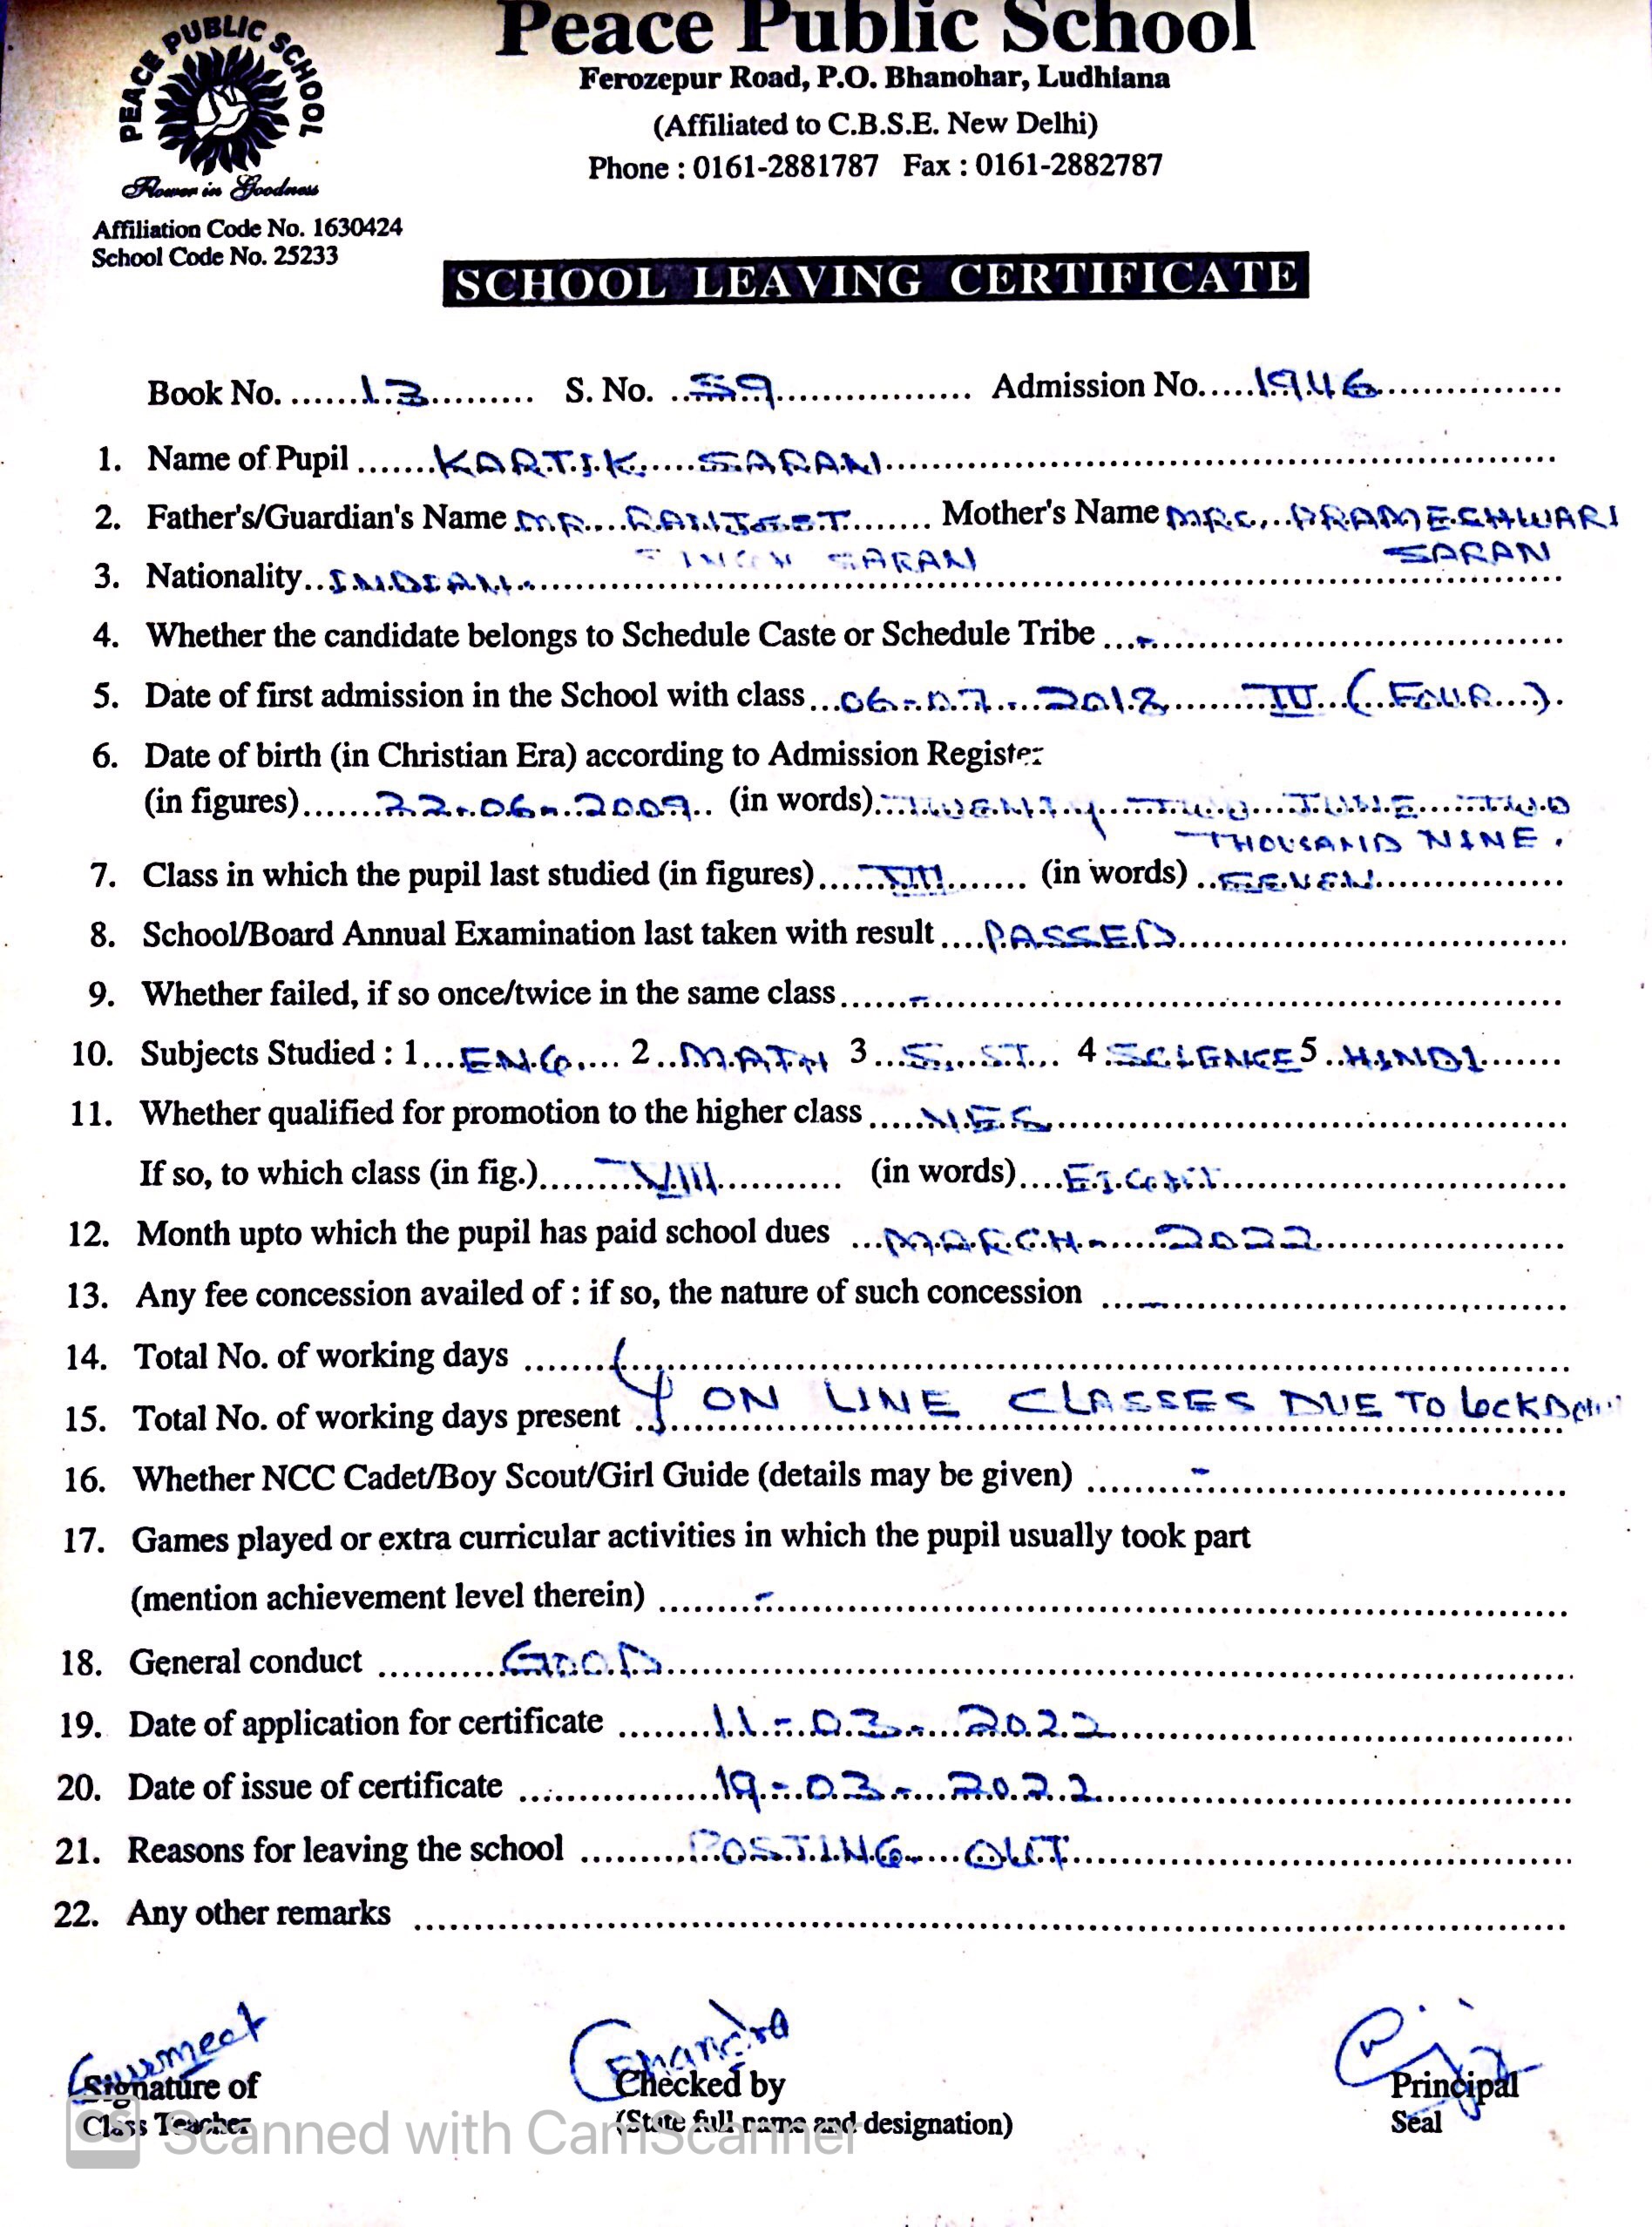 PEACE PUBLIC SCHOOL
Flower in Goodness
Affiliation Code No. 1630424
School Code No. 25233
Peace Public School
Ferozepur Road, P.O. Bhanohar, Ludhiana
(Affiliated to C.B.S.E. New Delhi)
Phone : 0161-2881787 Fax : 0161-2882787
SCHOOL LEAVING CERTIFICATE
Book No. 13 S. No. 59 Admission No. 1946
1. Name of Pupil KARTIK SARAN
2. Father's/Guardian's Name MR. RANJEET Mother's Name MRS. PRAMESHWARI
SINGH SARAN SARAN
3. Nationality INDIAN
4. Whether the candidate belongs to Schedule Caste or Schedule Tribe -
5. Date of first admission in the School with class 06-07-2018 IV (FOUR)
6. Date of birth (in Christian Era) according to Admission Register
(in figures) 22-06-2009 (in words) TWENTY TWO JUNE TWO
THOUSAND NINE.
7. Class in which the pupil last studied (in figures) VII (in words) SEVEN
8. School/Board Annual Examination last taken with result PASSED
9. Whether failed, if so once/twice in the same class -
10. Subjects Studied : 1 ENG. 2 MATH 3 S. ST. 4 SCIENCE 5 HINDI
11. Whether qualified for promotion to the higher class YES
If so, to which class (in fig.) VIII (in words) EIGHT
12. Month upto which the pupil has paid school dues MARCH - 2022
13. Any fee concession availed of : if so, the nature of such concession -
14. Total No. of working days
15. Total No. of working days present ON LINE CLASSES DUE TO LOCKDOWN
16. Whether NCC Cadet/Boy Scout/Girl Guide (details may be given) -
17. Games played or extra curricular activities in which the pupil usually took part
(mention achievement level therein) -
18. General conduct GOOD
19. Date of application for certificate 11-03-2022
20. Date of issue of certificate 19-03-2022
21. Reasons for leaving the school POSTING OUT
22. Any other remarks
Gurmeet Chandra
Signature of Checked by Principal
Class Teacher (State full name and designation) Seal
CS Scanned with CamScanner